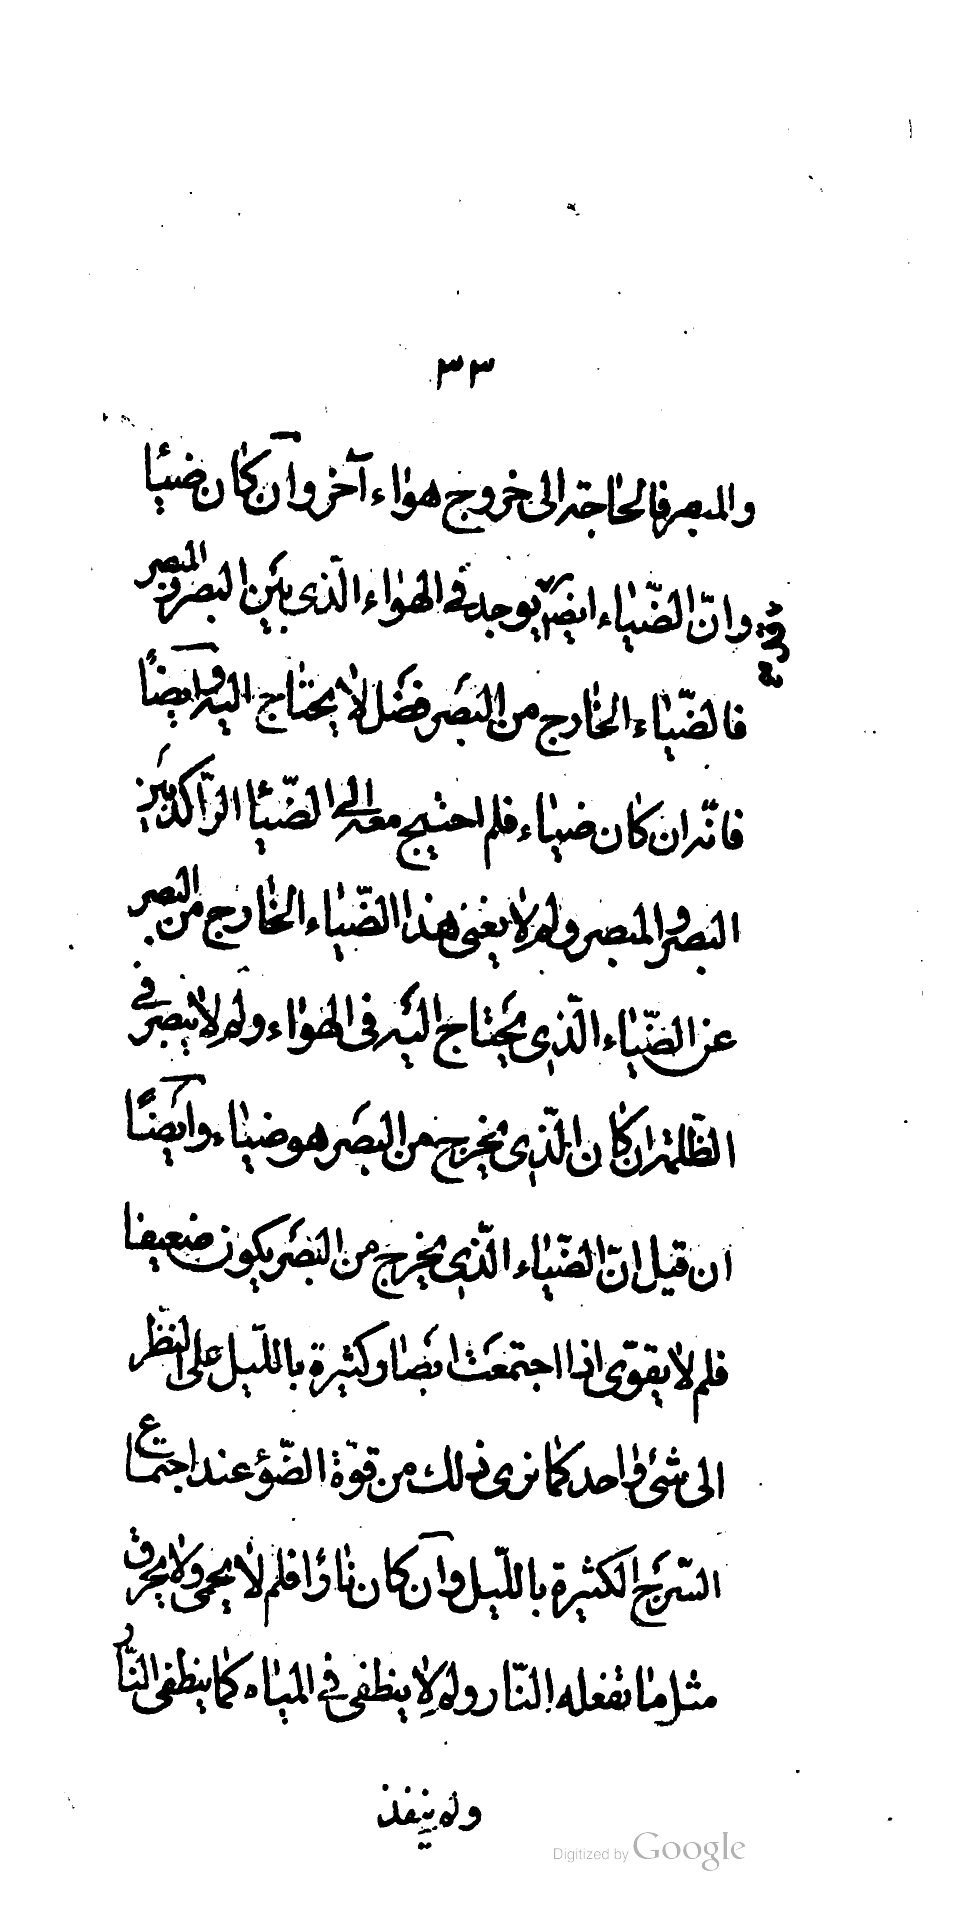 ٣٣
والمبصر فالحاجة الى خروج هواء آخر وان كان ضيئا
وانّ الضّياء ايضا يوجد فى الهواء الّذى بين البصر والمبصر
فالضّياء الخارج من البصر فضل لا يحتاج اليه وايضًا
فانّه ان كان ضياء فلم احتيج معه الى الضّيئا الرّاكد بين
البصر والمبصر ولم لا يغنى هذا الضّياء الخارج من البصر
عن الضّياء الّذى يحتاج اليه فى الهواء ولم لا يبصر فى
الظّلمة ان كان الّذى يخرج من البصر هو ضياء وايضًا
ان قيل انّ الضّياء الّذى يخرج من البصر يكون ضعيفا
فلم لا يقوّى اذا اجتمعت ابصار كثيرة باللّيل على النظر
الى شئ واحد كما نرى ذلك من قوّة الضّوء عند اجتماع
السّرج الكثيرة باللّيل وان كان نارًا فلم لا يحمى ولا يحرق
مثل ما تفعله النّار ولم لا ينطفى فى المياه كما ينطفى النّار
ولم ينفذ
Digitized by Google